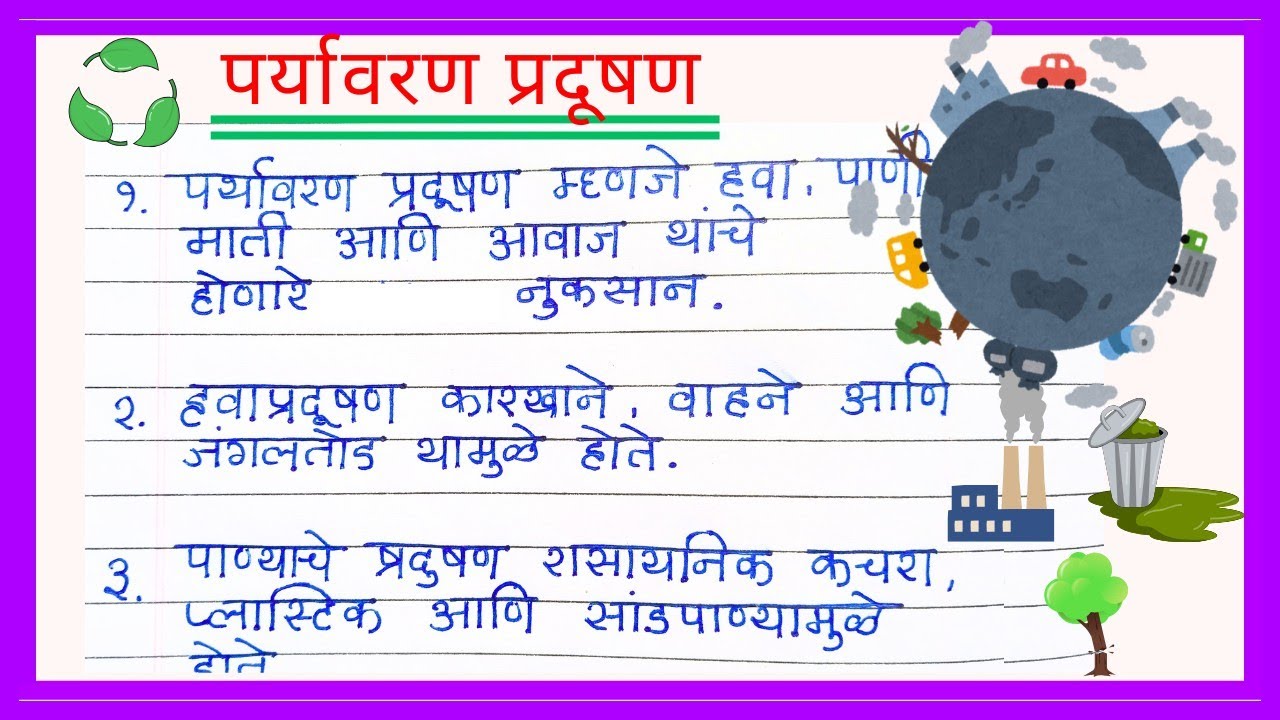 पर्यावरण प्रदूषण
१. पर्यावरण प्रदूषण म्हणजे हवा, पाणी
माती आणि आवाज यांचे
होणारे नुकसान.
२. हवाप्रदूषण कारखाने, वाहने आणि
जंगलतोड यामुळे होते.
३. पाण्याचे प्रदुषण रासायनिक कचरा,
प्लास्टिक आणि सांडपाण्यामुळे
होते